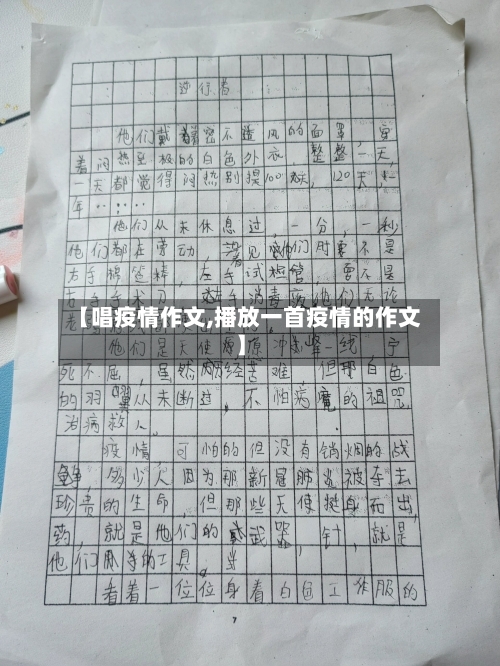 逆行者
他们戴着密不透风的面罩，穿
着闷热至极的白色外衣，整整一天，
一天都觉得闷热别提100天，120天，一
年……
他们从未休息过，一分，一秒
他们都在劳动，没见他们时要不是
右手棉签，左手试管，要不是
右手术刀，左手消毒液他们无论
【唱疫情作文,播放一首疫情的作文
】
他们是天使原冲一线，宁
死不屈，虽然历经苦难，但那白色
的羽翼从未断过，不怕病魔的诅咒
治病救人，
疫情，可怕的但没有销烟的战
多少人因为那新冠肺炎被夺去
珍贵的生命，但那些天使挺身而出，
药，就是他们的武器，针，就是
他们的工具，
看着一位位身着白色工作服的
7